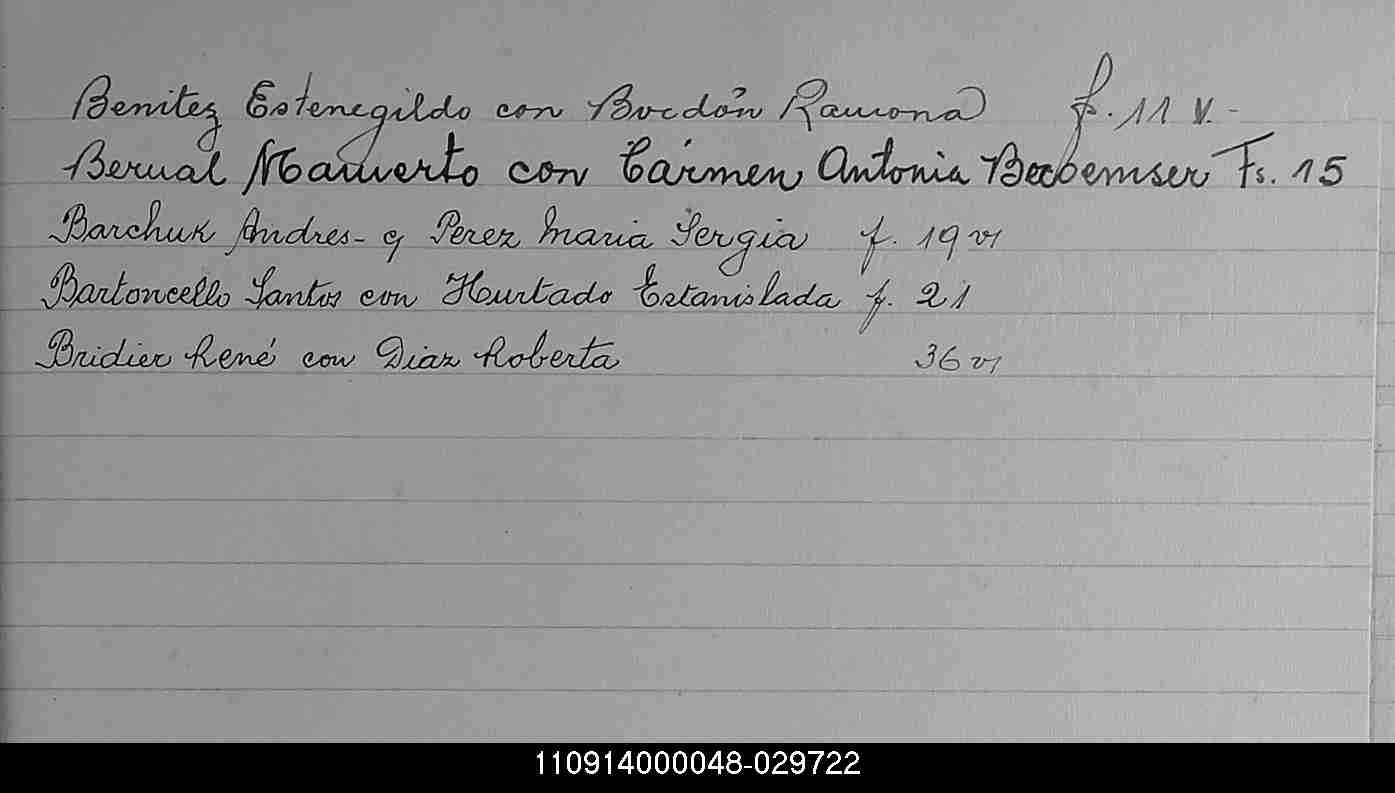 Benitez Estenegildo con Bordón Ramona f. 11 v.-
Bernal Mamerto con Cármen Antonia Fs. 15
Barchuk Andres- y Perez Maria Sergia f. 19 v
Bartoncello Santos con Hurtado Estanislada f. 21
Bridier René con Diaz Roberta 36 v
110914000048-029722